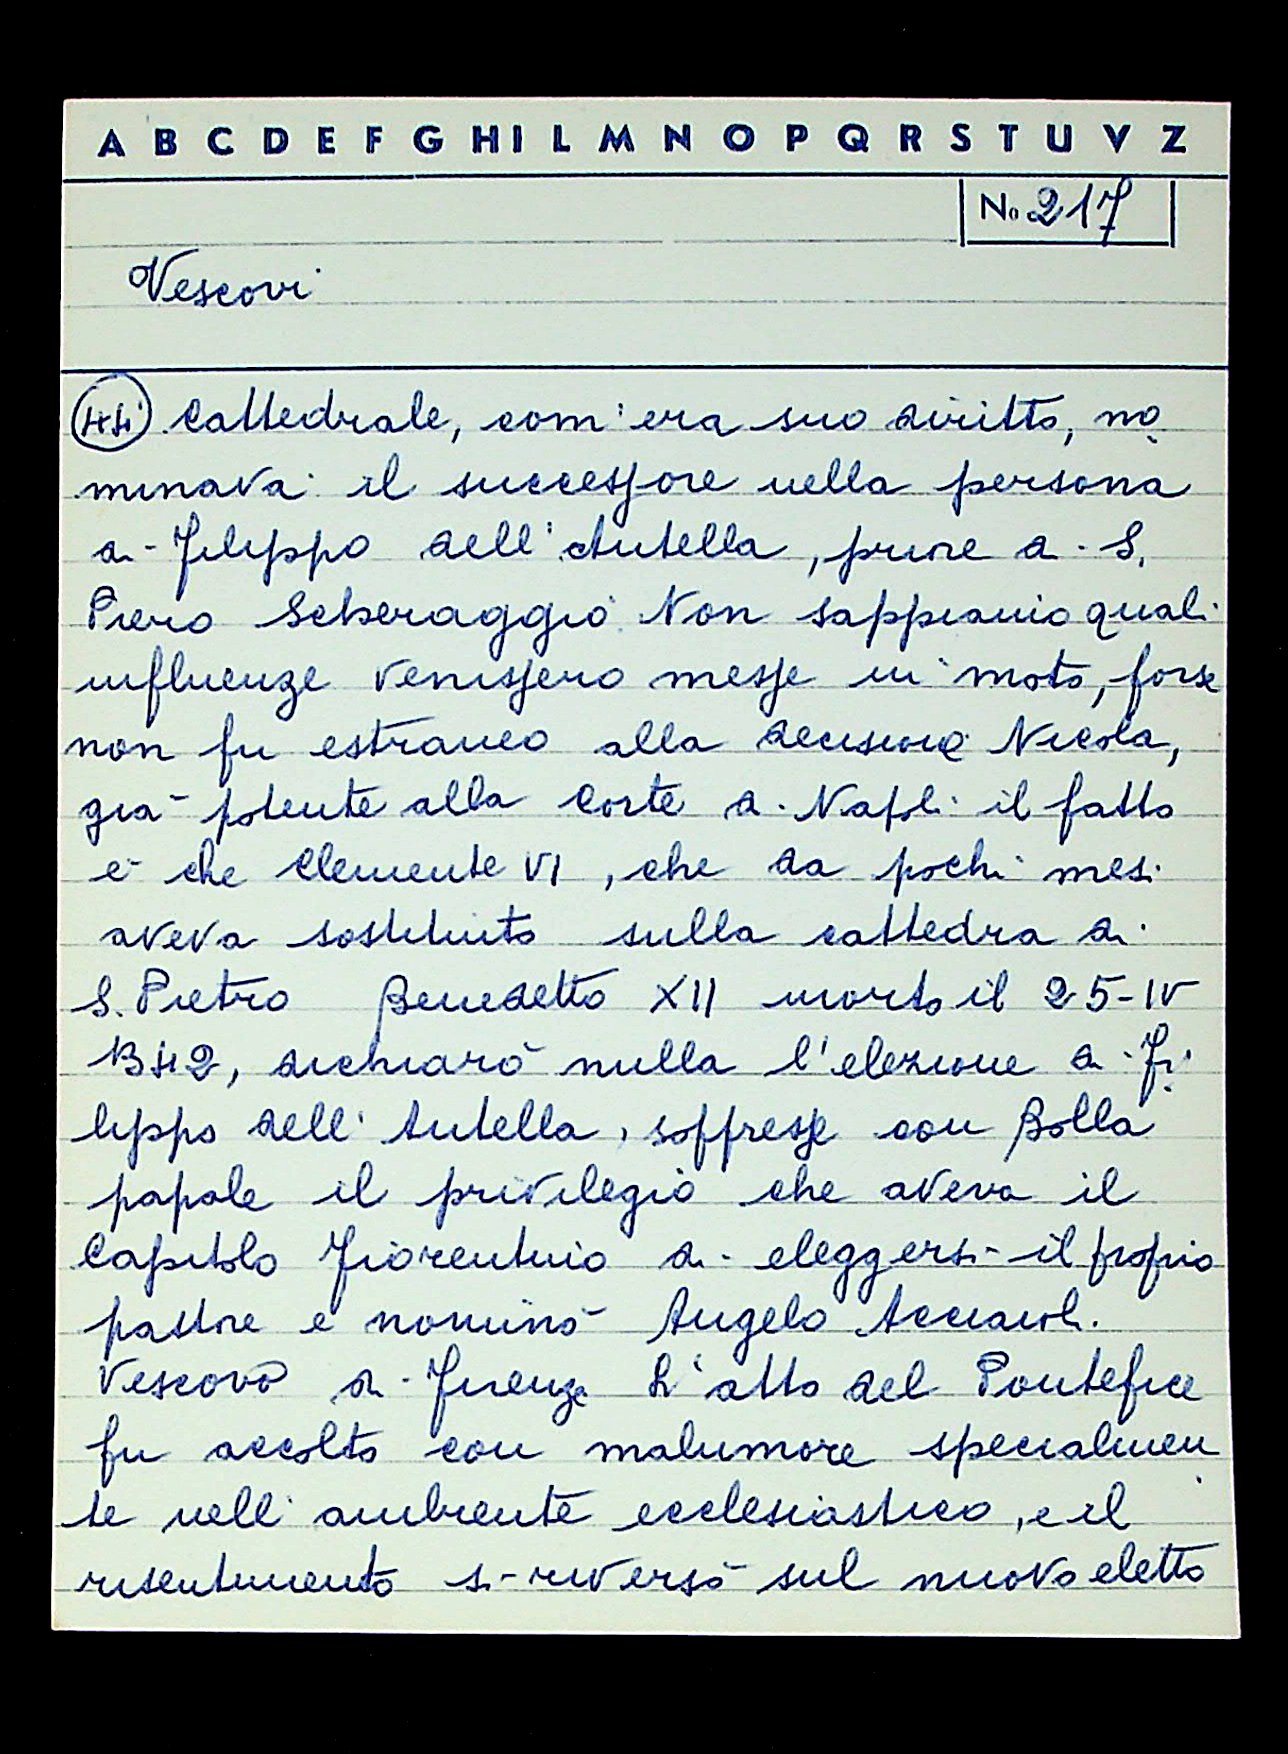 A B C D E F G H I L M N O P Q R S T U V Z
No 217
Vescovi
cattedrale, com'era suo diritto, no
minava il successore nella persona
di Filippo dell'Antella, priore di S.
Piero Scheraggio. Non sappiamo quali
influenze venissero messe in moto, forse
non fu estraneo alla decisione Nicola,
già potente alla Corte di Napoli il fatto
è che Clemente VI, che da pochi mesi
aveva sostituito sulla cattedra di
S. Pietro Benedetto XII morto il 25-IV
1342, dichiarò nulla l'elezione di Fi
lippo dell'Antella, soppresse con Bolla
papale il privilegio che aveva il
Capitolo Fiorentino di eleggersi il proprio
pastore e nominò Angelo Acciaioli
Vescovo di Firenze L'atto del Pontefice
fu accolto con malumore specialmen
te nell'ambiente ecclesiastico, e il
risentimento si riversò sul nuovo eletto